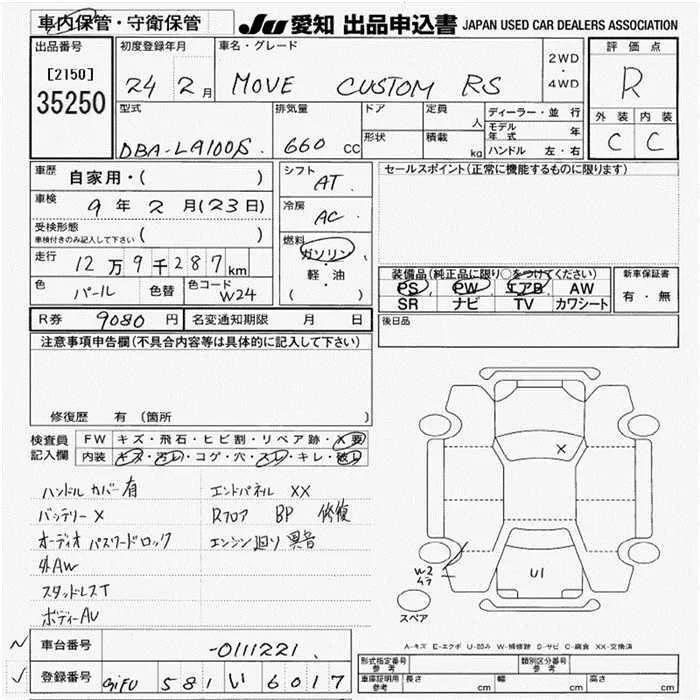 車内保管・守衛保管
JU 愛知 出品申込書 JAPAN USED CAR DEALERS ASSOCIATION
出品番号
[2150]
35250
初度登録年月
24 2月
車名・グレード
MOVE CUSTOM RS
2WD
・
4WD
評価点
R
外装 内装
C C
型式
DBA-LA100S
排気量
660 cc
ドア
形状
定員 人
積載 kg
ディーラー・並行
モデル年式 年
ハンドル 左・右
車歴
自家用・( )
車検
9年2月(23日)
受検形態
車検付きのみ記入して下さい ( )
走行
12万9千287km
色 パール 色替 色コード W24
シフト
AT
冷房
AC
燃料
ガソリン
・
軽・油
( )
セールスポイント(正常に機能するものに限ります)
装備品(純正品に限り○をつけてください)
PS PW エアB AW
SR ナビ TV カワシート
新車保証書
有・無
R券 9080円 名変通知期限 月 日
後日品
注意事項申告欄(不具合内容等は具体的に記入して下さい)
修復歴 有(箇所 )
検査員記入欄
FW キズ・飛石・ヒビ割・リペア跡・X要
内装 キズ・汚レ・コゲ・穴・スレ・キレ・破レ
ハンドルカバー有 エンドパネル XX
バッテリーX Rフロア BP 修復
オーディオ パスワードロック エンジン廻り異音
外AW
スタッドレスT
ボディーAU
X
U1
W2
スペア
A-キズ E-エクボ U-凹み W-補修跡 S-サビ C-腐食 XX-交換済
車台番号 -0111221
登録番号 GIFU 581 い 6017
型式指定番号
参考
類別区分番号
参考
車庫証明用
参考
長さ cm 幅 cm 高さ cm